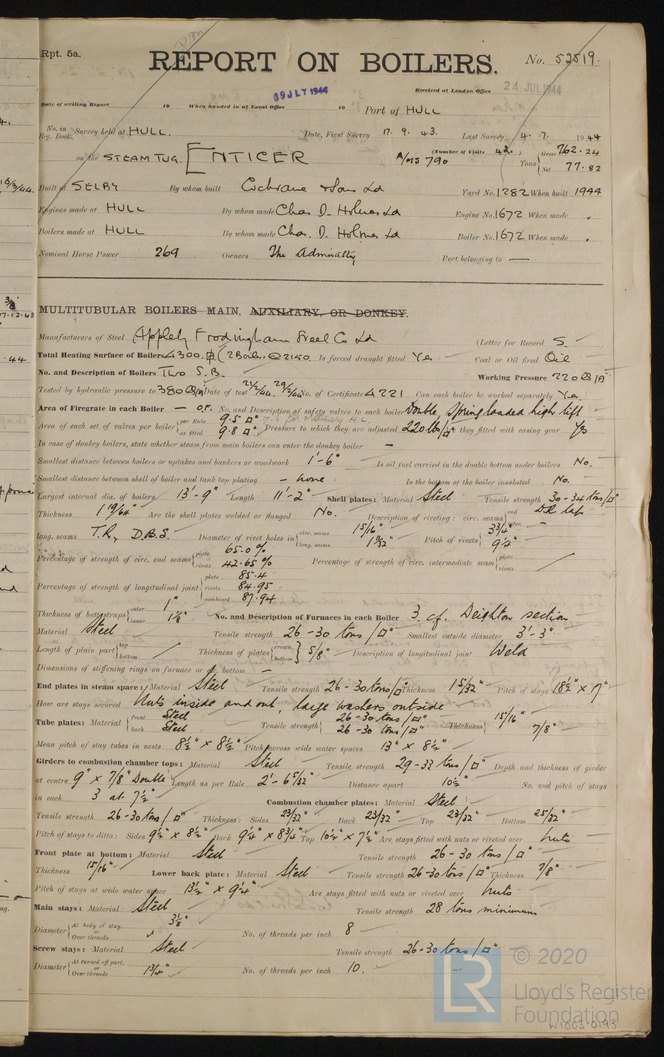 Rpt. 5a.
REPORT ON BOILERS.
No. 52519.
Received at London Office 24 JUL 1944
Date of writing Report 19 When handed in at Local Office 19 JLY 1944 19 Port of HULL
No. in Reg. Book. Survey held at HULL. Date, First Survey 17. 9. 43. Last Survey 4. 7. 1944
on the STEAM TUG. ENTICER (Number of Visits 42) Tons { Gross 762.24 Net 77.82
Built at SELBY By whom built Cochrane & Sons Ld Yard No. 1282 When built 1944
Engines made at HULL By whom made Chas D. Holmes Ld Engine No. 1672 When made "
Boilers made at HULL By whom made Chas. D. Holmes Ld Boiler No. 1672 When made "
Nominal Horse Power 269 Owners The Admiralty Port belonging to —
MULTITUBULAR BOILERS MAIN, AUXILIARY, OR DONKEY.
Manufacturers of Steel Appleby Frodingham Steel Co Ld (Letter for Record S.
Total Heating Surface of Boilers 4300 (2 Boilers @ 2150 Is forced draught fitted Yes Coal or Oil fired Oil
No. and Description of Boilers Two S.B. Working Pressure 220
Tested by hydraulic pressure to 380 Date of test No. of Certificate 4221 Can each boiler be worked separately Yes.
Area of Firegrate in each Boiler — O.F. No. and Description of safety valves to each boiler Double, Spring loaded high lift
Area of each set of valves per boiler { per Rule 9.5 □" as fitted 9.8 □" Pressure to which they are adjusted 220 lbs/□" Are they fitted with easing gear Yes
In case of donkey boilers, state whether steam from main boilers can enter the donkey boiler —
Smallest distance between boilers or uptakes and bunkers or woodwork 1'-6" Is oil fuel carried in the double bottom under boilers No.
Smallest distance between shell of boiler and tank top plating - none. Is the bottom of the boiler insulated No.
Largest internal dia. of boilers 13'-9" Length 11'-2" Shell plates: Material Steel Tensile strength 30-34 tons/□"
Thickness 1 19/64" Are the shell plates welded or flanged No. Description of riveting: circ. seams { end DR lap
long. seams T.R, D.B.S. Diameter of rivet holes in { circ. seams 1 5/16" long. seams 1 9/32" Pitch of rivets { 3 3/4" 9 1/4"
Percentage of strength of circ. end seams { plate 65.0 % rivets 42.65 % Percentage of strength of circ. intermediate seam { plate rivets
Percentage of strength of longitudinal joint { plate 85.4 rivets 84.95 combined 87.94
Thickness of butt straps { outer 1" inner 1 1/8" No. and Description of Furnaces in each Boiler 3 c.f. Deighton section
Material Steel Tensile strength 26-30 tons/□" Smallest outside diameter 3'-3"
Length of plain part { top bottom Thickness of plates { crown bottom } 5/8" Description of longitudinal joint Weld
Dimensions of stiffening rings on furnace or c/c bottom —
End plates in steam space: Material Steel Tensile strength 26-30 tons/□" Thickness 1 5/32" Pitch of stays 18 1/2" x 17"
How are stays secured Nuts inside and out, large washers outside
Tube plates: Material { front Steel back Steel Tensile strength { 26-30 tons/□" 26-30 tons/□" Thickness { 15/16" 7/8"
Mean pitch of stay tubes in nests 8 1/2" x 8 1/2" Pitch across wide water spaces 13" x 8 1/2"
Girders to combustion chamber tops: Material Steel Tensile strength 29-33 tons/□" Depth and thickness of girder
at centre 9" x 7/8" Double Length as per Rule 2'-6 5/32" Distance apart 10 1/2" No. and pitch of stays
in each 3 at 7 1/2" Combustion chamber plates: Material Steel
Tensile strength 26-30 tons/□" Thickness: Sides 23/32" Back 23/32" Top 23/32" Bottom 25/32"
Pitch of stays to ditto: Sides 9 1/2" x 8 1/2" Back 9 1/4" x 8 3/4" Top 10 1/2" x 7 1/2" Are stays fitted with nuts or riveted over nuts
Front plate at bottom: Material Steel Tensile strength 26-30 tons/□"
Thickness 15/16" Lower back plate: Material Steel Tensile strength 26-30 tons/□" Thickness 7/8"
Pitch of stays at wide water space 13 1/2" x 9 1/4" Are stays fitted with nuts or riveted over nuts
Main stays: Material Steel Tensile strength 28 tons minimum
Diameter { At body of stay, or Over threads 3 1/8" No. of threads per inch 8
Screw stays: Material Steel Tensile strength 26-30 tons/□"
Diameter { At turned off part, or Over threads 1 3/4" No. of threads per inch 10.
LR
© 2020
Lloyd's Register
Foundation
W1003-0193